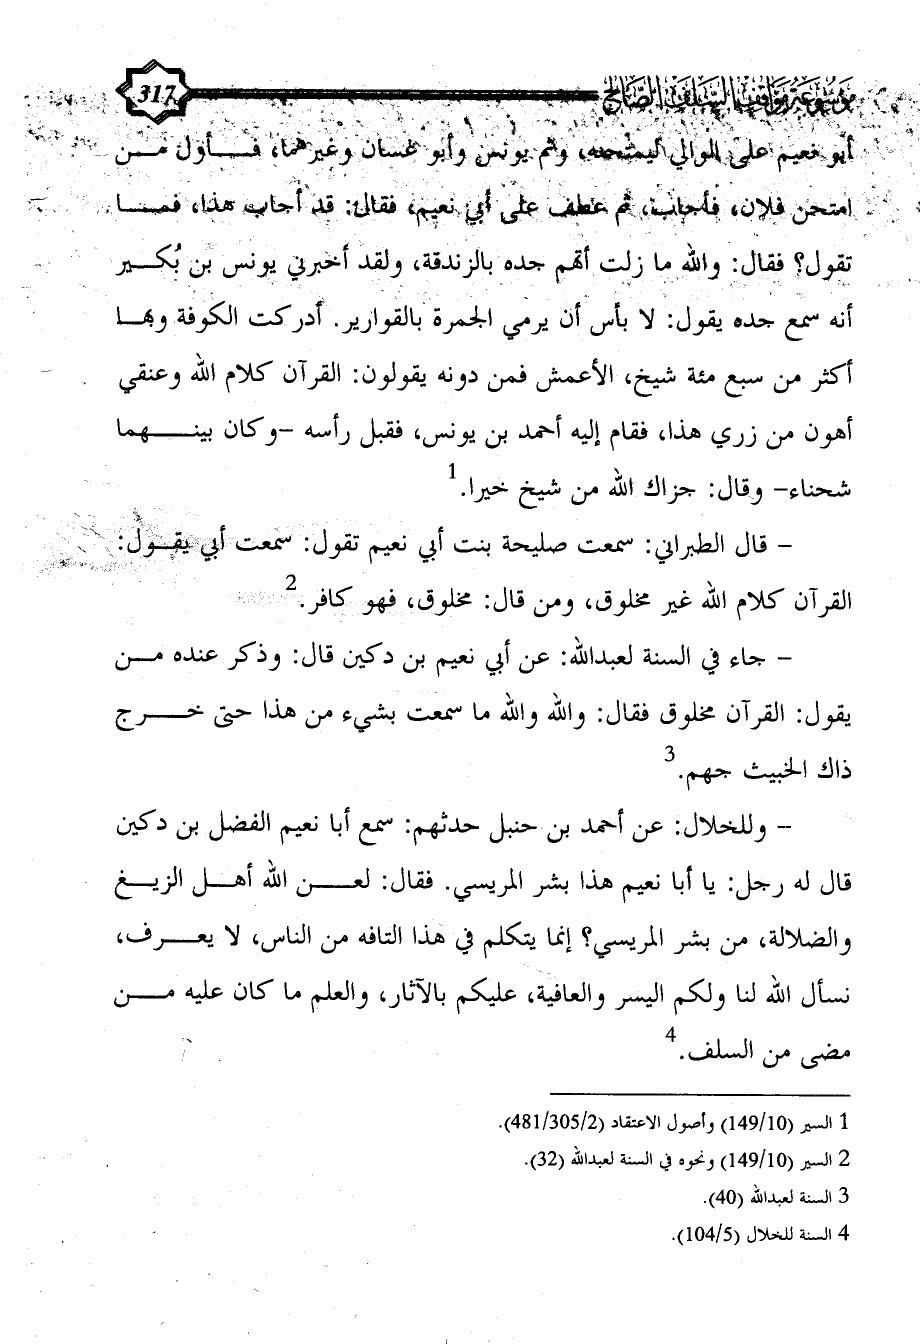 موسوعة مواقف السلف الصالح
317
أبو نعيم على الوالي ليمتحنه، وثم يونس وأبو غسان وغيرهما، فأول من
امتحن فلان، فأجاب، ثم عطف على أبي نعيم، فقال: قد أجاب هذا، فما
تقول؟ فقال: والله ما زلت أتهم جده بالزندقة، ولقد أخبرني يونس بن بُكير
أنه سمع جده يقول: لا بأس أن يرمي الجمرة بالقوارير. أدركت الكوفة وبها
أكثر من سبع مئة شيخ، الأعمش فمن دونه يقولون: القرآن كلام الله وعنقي
أهون من زري هذا، فقام إليه أحمد بن يونس، فقبل رأسه –وكان بينهما
شحناء– وقال: جزاك الله من شيخ خيرا.1
– قال الطبراني: سمعت صليحة بنت أبي نعيم تقول: سمعت أبي يقول:
القرآن كلام الله غير مخلوق، ومن قال: مخلوق، فهو كافر.2
– جاء في السنة لعبدالله: عن أبي نعيم بن دكين قال: وذكر عنده من
يقول: القرآن مخلوق فقال: والله والله ما سمعت بشيء من هذا حتى خرج
ذاك الخبيث جهم.3
– وللخلال: عن أحمد بن حنبل حدثهم: سمع أبا نعيم الفضل بن دكين
قال له رجل: يا أبا نعيم هذا بشر المريسي. فقال: لعن الله أهل الزيغ
والضلالة، من بشر المريسي؟ إنما يتكلم في هذا التافه من الناس، لا يعرف،
نسأل الله لنا ولكم اليسر والعافية، عليكم بالآثار، والعلم ما كان عليه من
مضى من السلف.4
1 السير (149/10) وأصول الاعتقاد (481/305/2).
2 السير (149/10) ونحوه في السنة لعبدالله (32).
3 السنة لعبدالله (40).
4 السنة للخلال (104/5).